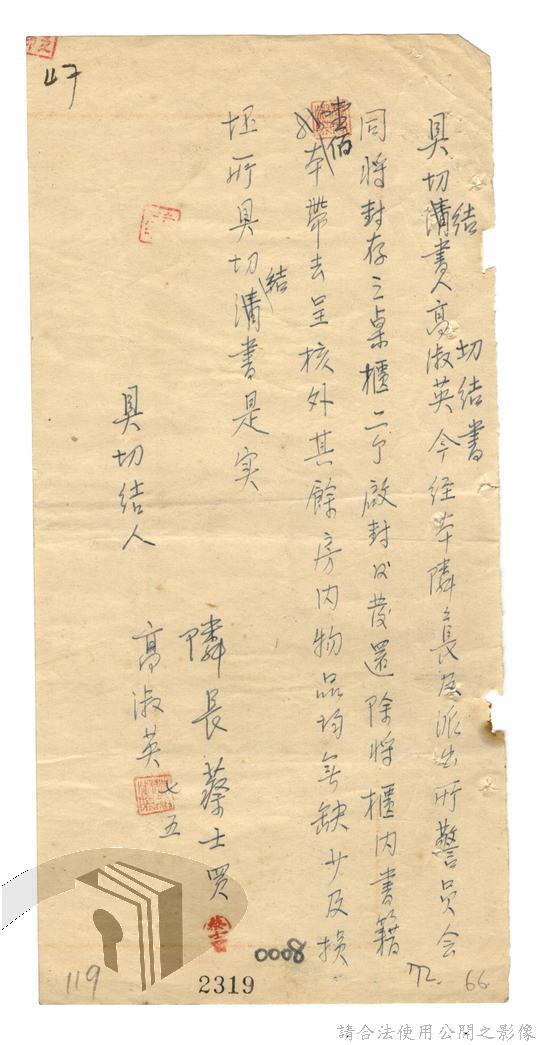 切結書
具切結書人高淑英今经本隣長及派出所警员会
同將封存之桌櫃二个啟封以发還除將櫃内書籍
壹佰
本帶去呈核外其餘房内物品均無缺少及損
坯所具切結書是实
具切结人
高淑英
七五
隣長蔡士买
47
119
2319
0008
72.
66
請合法使用公開之影像